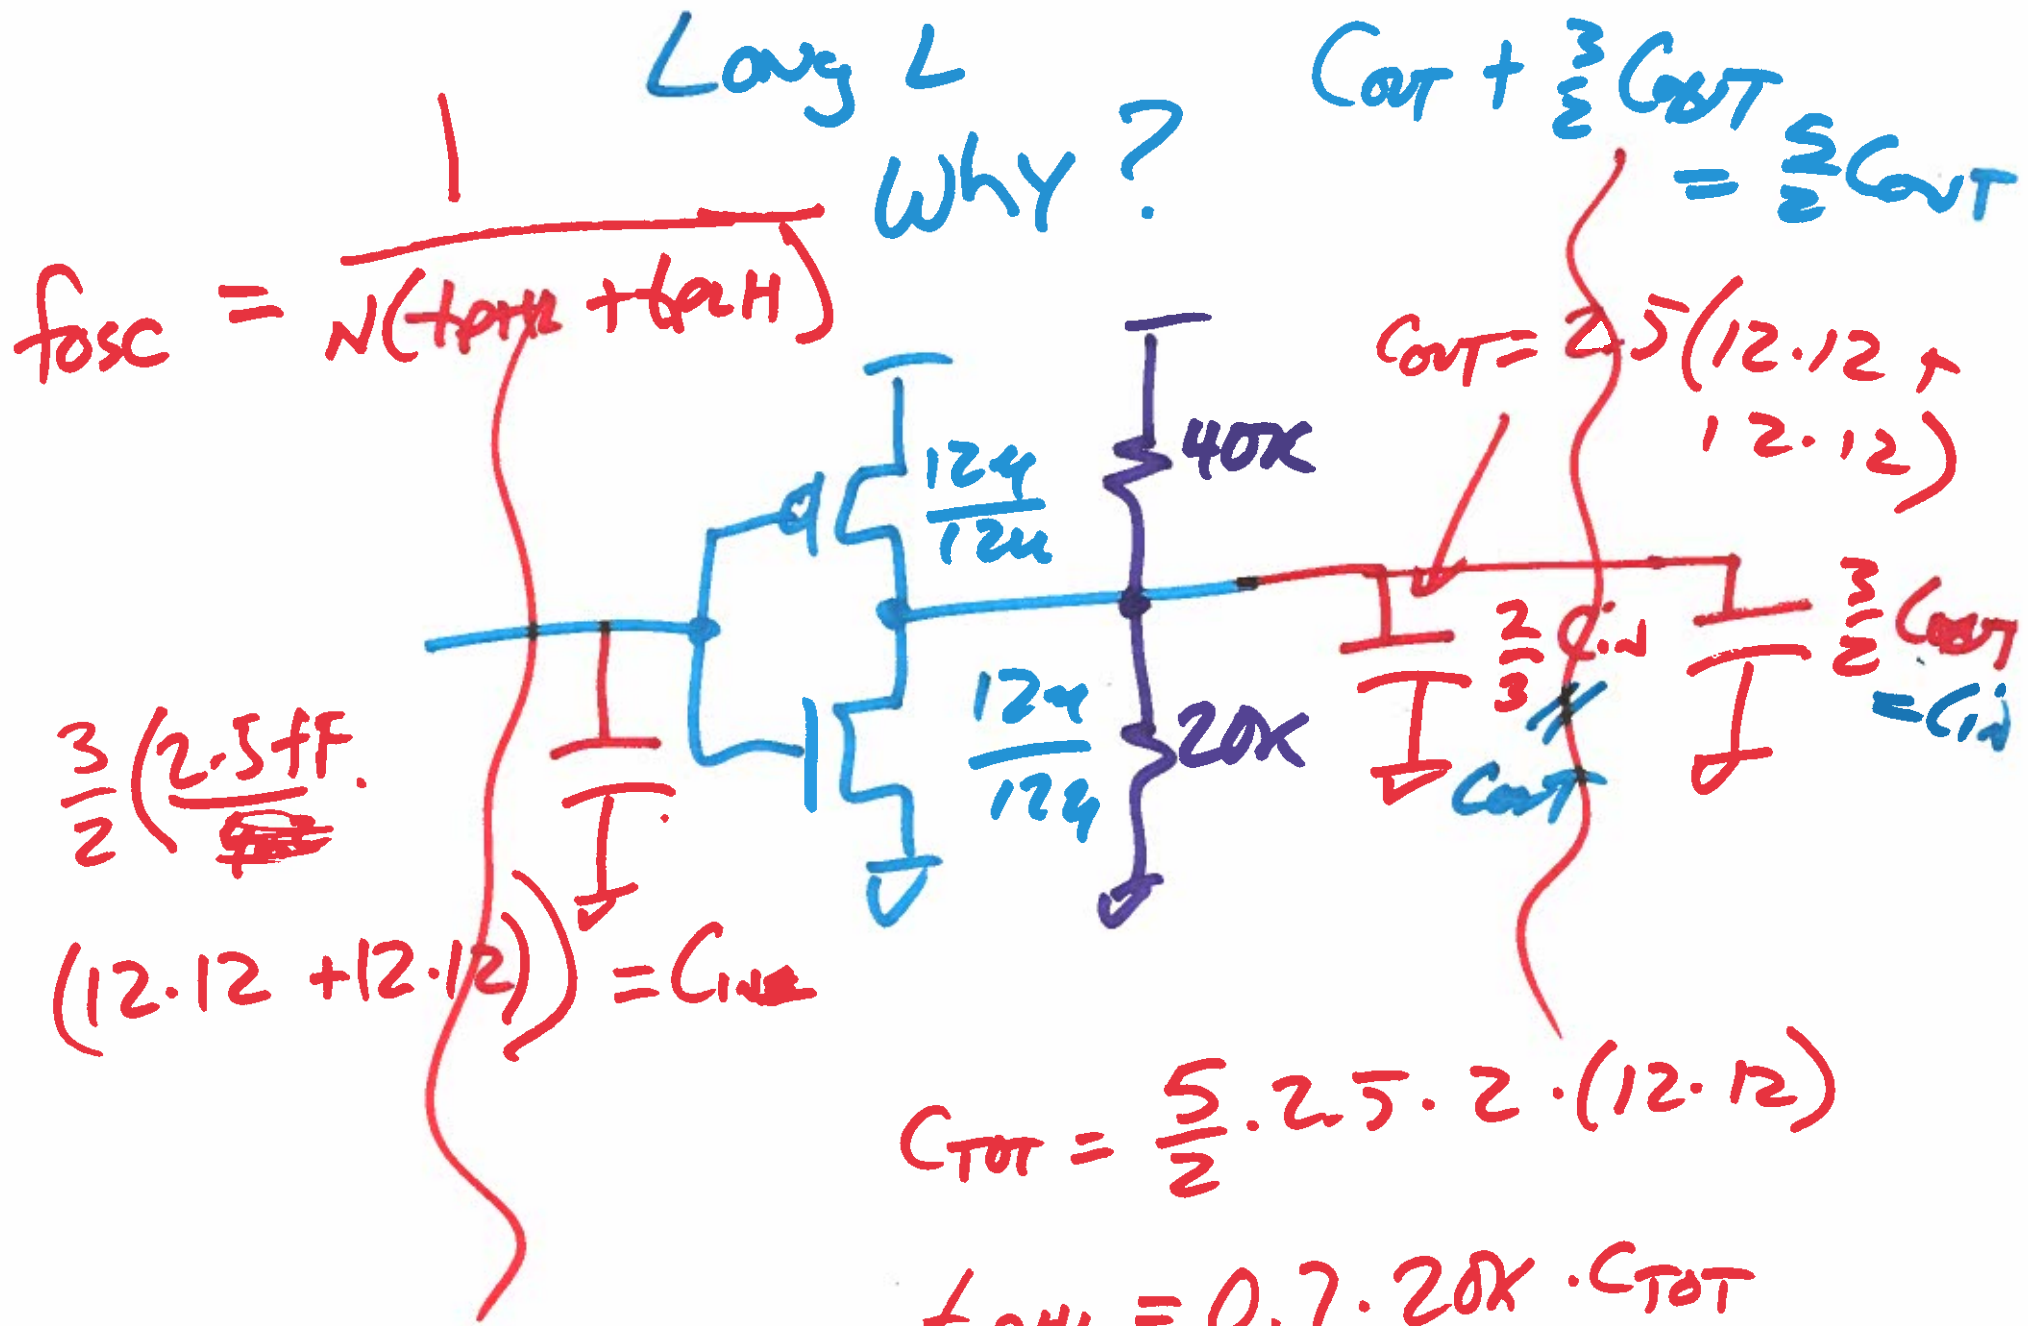 Long L
Why?
Cout + 3/2 Cout
= 5/2 Cout
1
fosc = N(tPHL + tPLH)
Cout = 2.5(12.12 +
12.12)
12u
12u
40K
12u
12u
20K
2/3 Cin
Cout
3/2 Cout
= Cin
3/2 (2.5fF.
(12.12 + 12.12)) = Cin
CTOT = 5/2 . 2.5 . 2 . (12.12)
tPHL = 0.7 . 20K . CTOT